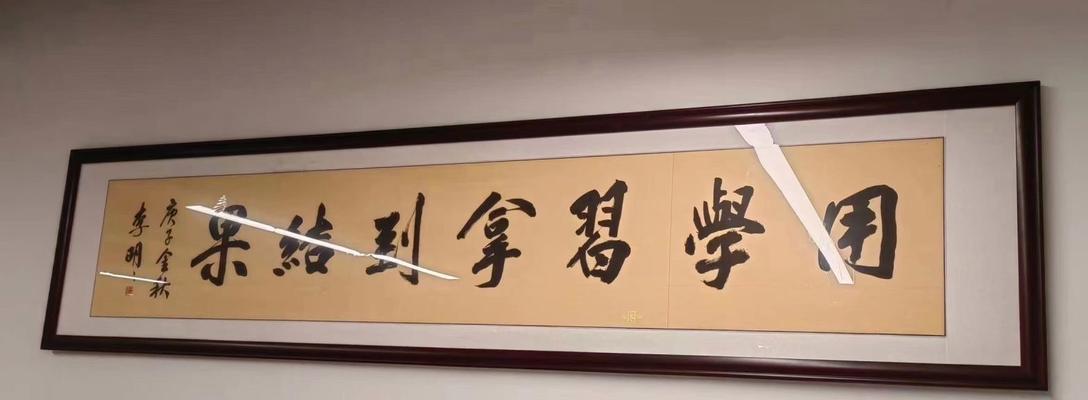 用學習拿到結果
庚子金秋
李明